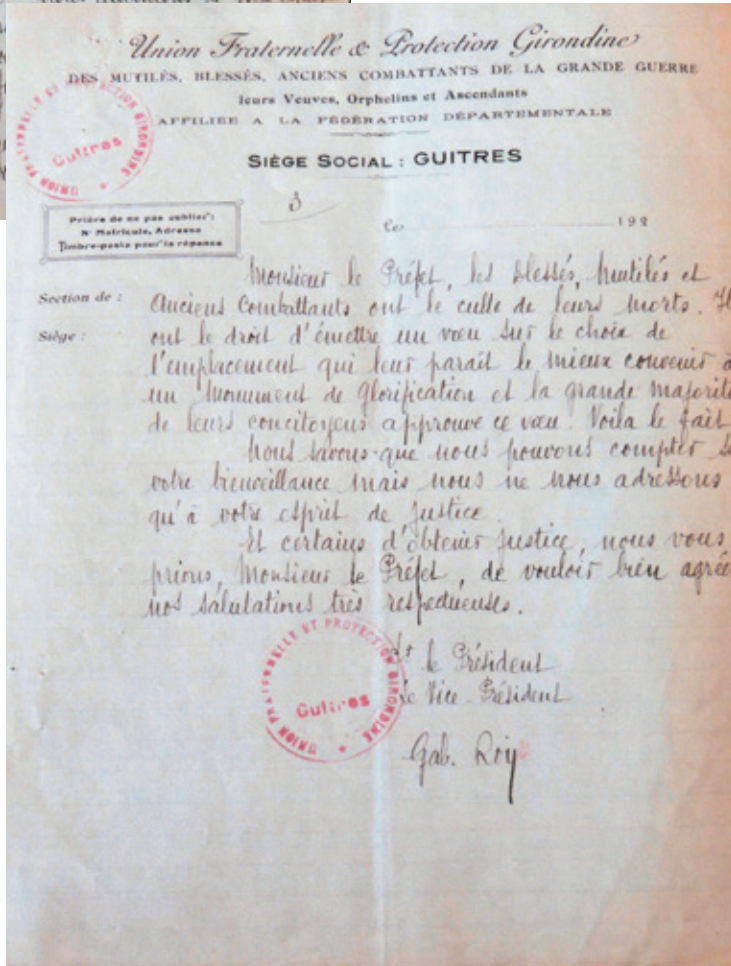 Union Fraternelle & Protection Girondine
DES MUTILÉS, BLESSÉS, ANCIENS COMBATTANTS DE LA GRANDE GUERRE
leurs Veuves, Orphelins et Ascendants
AFFILIÉE A LA FÉDÉRATION DÉPARTEMENTALE
SIÈGE SOCIAL : GUITRES
UNION FRATERNELLE ET PROTECTION GIRONDINE
Guitres
3
Prière de ne pas oublier :
N° Matricule, Adresse
Timbre-poste pour la réponse
le 192
Section de :
Siège :
Monsieur le Préfet, les blessés, mutilés et
Anciens Combattants ont le culte de leurs morts.
ont le droit d'émettre un vœu sur le choix de
l'emplacement qui leur parait le mieux convenir à
un Monument de glorification et la grande majorité
de leurs concitoyens approuve ce vœu. Voila le fait
Nous savons que nous pouvons compter
votre bienveillance mais nous ne nous adressons
qu'à votre esprit de justice.
Et certains d'obtenir justice, nous vous
prions, Monsieur le Préfet, de vouloir bien agrée
nos salutations très respectueuses.
le Président
Le Vice Président
UNION FRATERNELLE ET PROTECTION GIRONDINE
Guitres
Gab. Roy